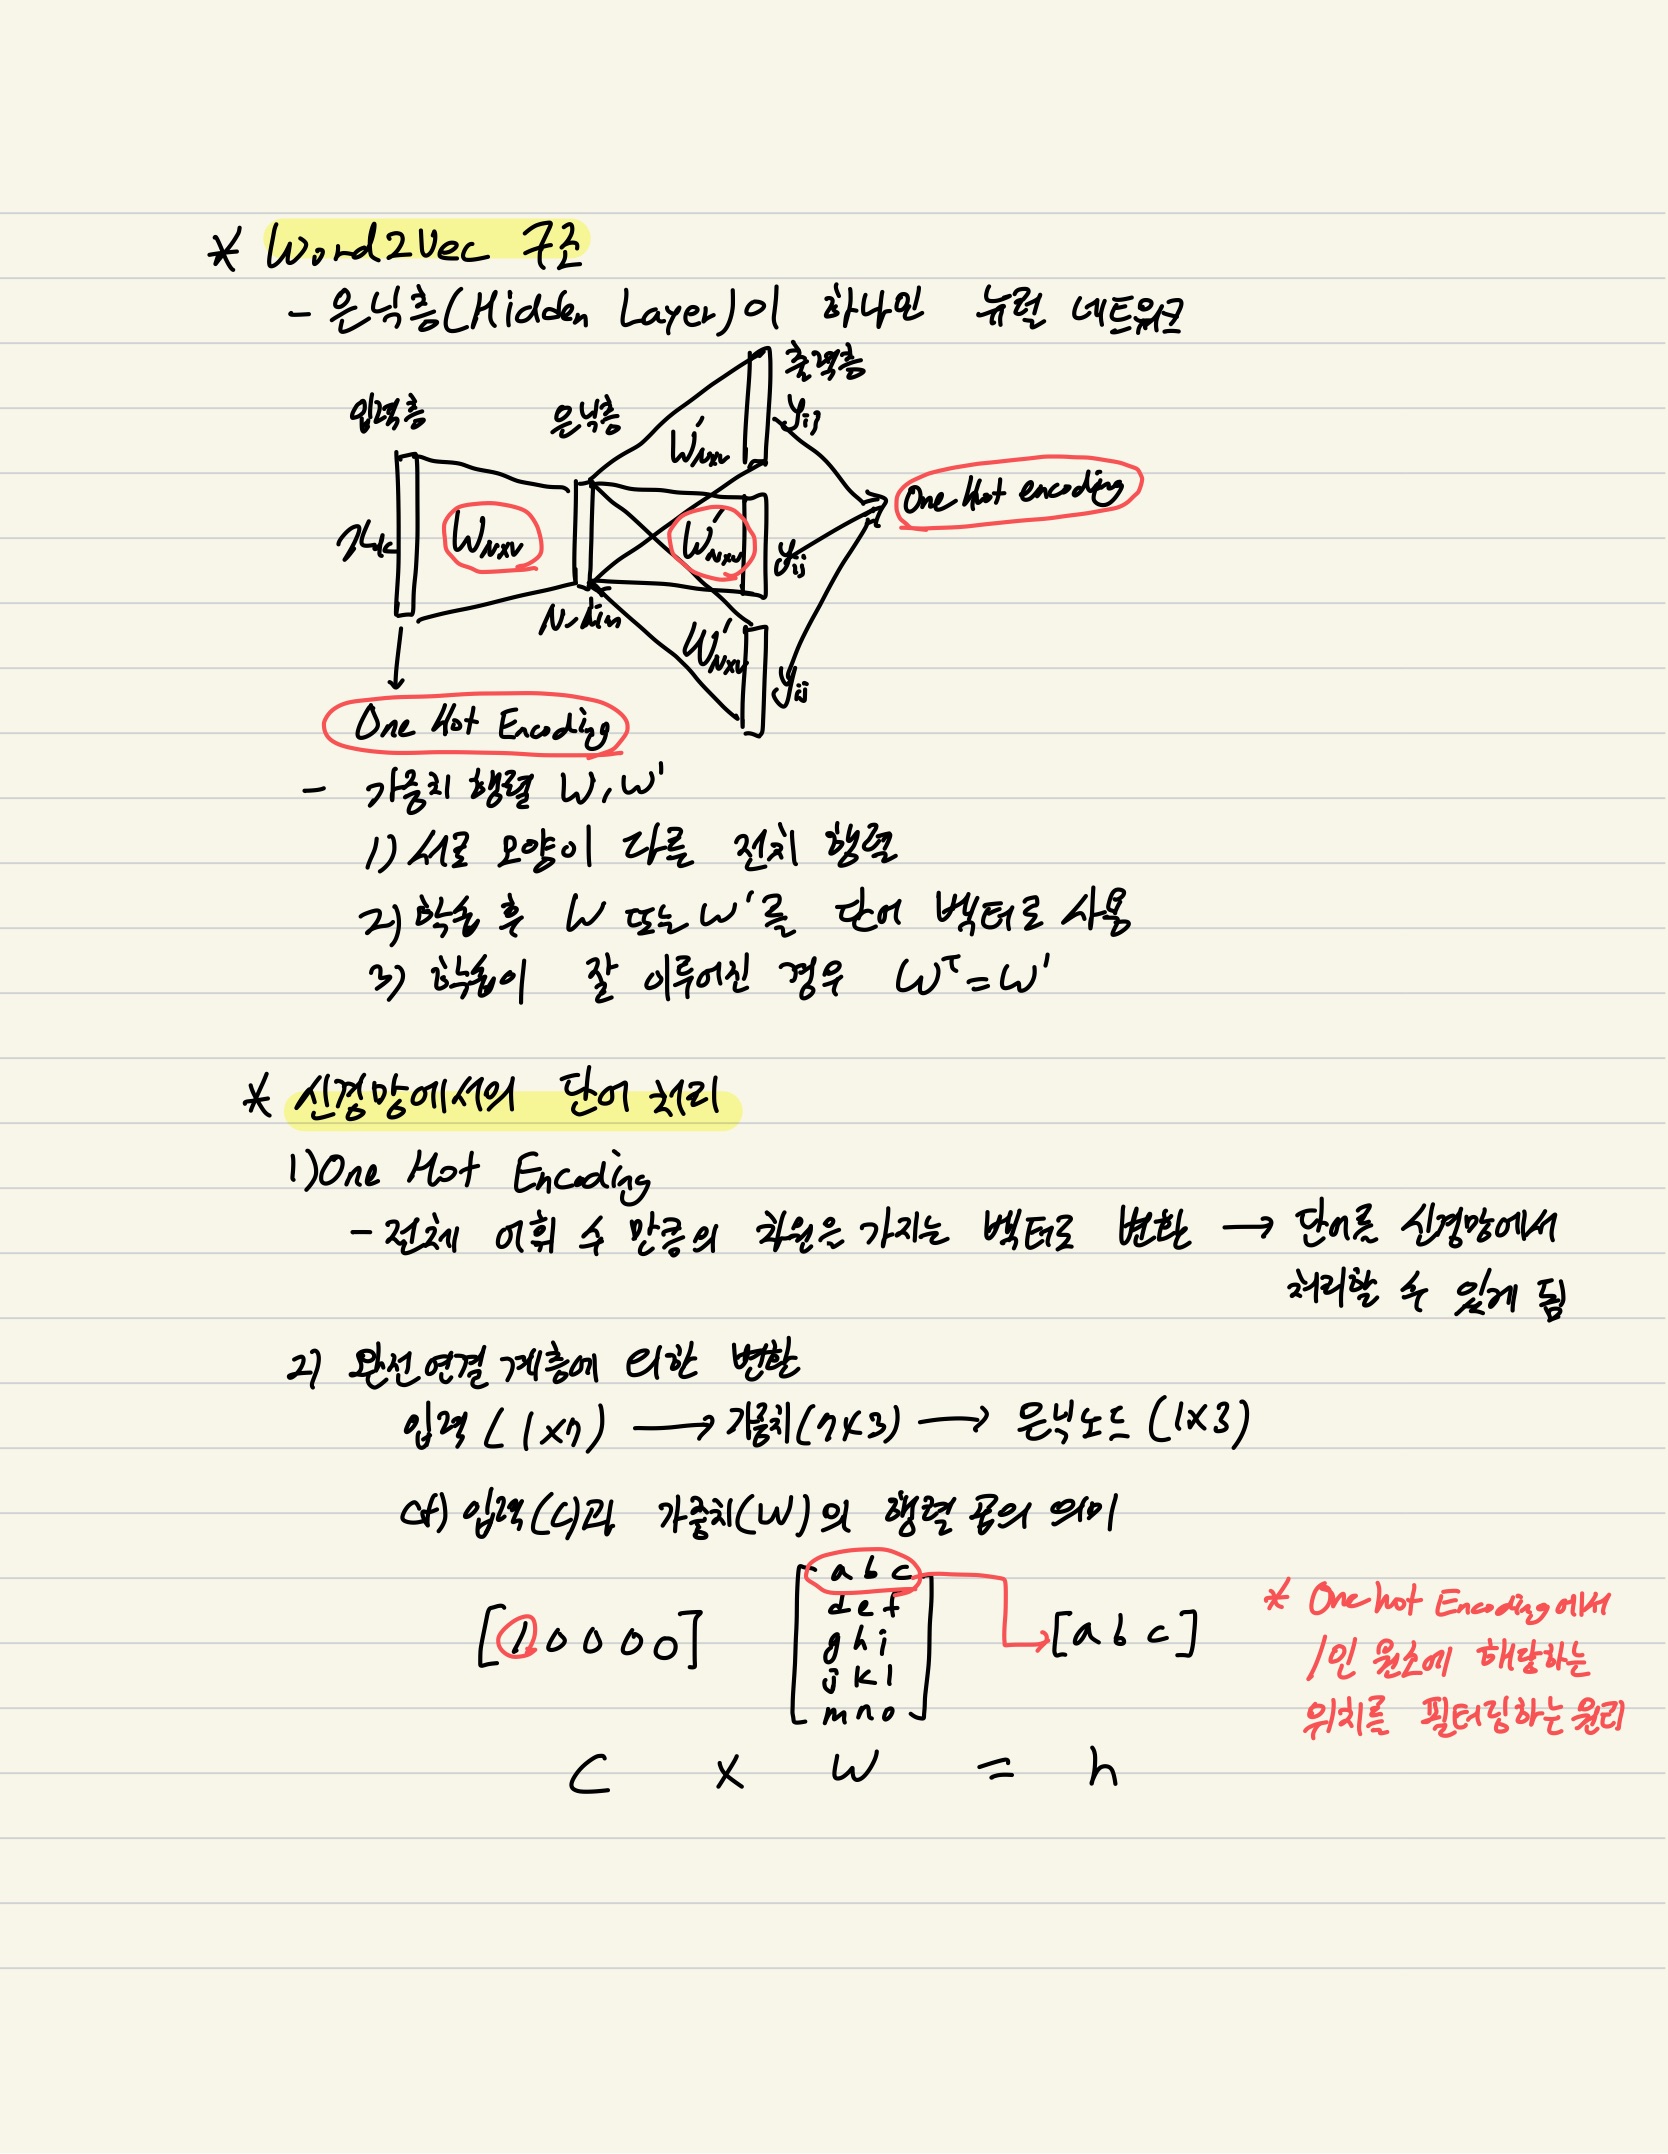 * Word2Vec 구조
- 은닉층(Hidden Layer)이 하나인 뉴럴 네트워크
입력층
은닉층
출력층
W'NxV
yij
xk
WNxV
W'NxV
yij
One Hot encoding
N-dim
W'NxV
yij
One Hot Encoding
- 가중치 행렬 W, W'
1) 서로 모양이 다른 전치 행렬
2) 학습 후 W 또는 W'를 단어 벡터로 사용
3) 학습이 잘 이루어진 경우 Wᵀ = W'
* 신경망에서의 단어 처리
1) One Hot Encoding
- 전체 어휘 수 만큼의 차원을 가지는 벡터로 변환 → 단어를 신경망에서
처리할 수 있게 됨
2) 완전연결계층에 의한 변환
입력 (1x7) → 가중치(7x3) → 은닉노드 (1x3)
cf) 입력(C)과 가중치(W)의 행렬 곱의 의미
[1 0 0 0 0]
a b c
d e f
g h i
j k l
m n o
[a b c]
* One hot Encoding에서
1인 원소에 해당하는
위치를 필터링하는 원리
C x W = h